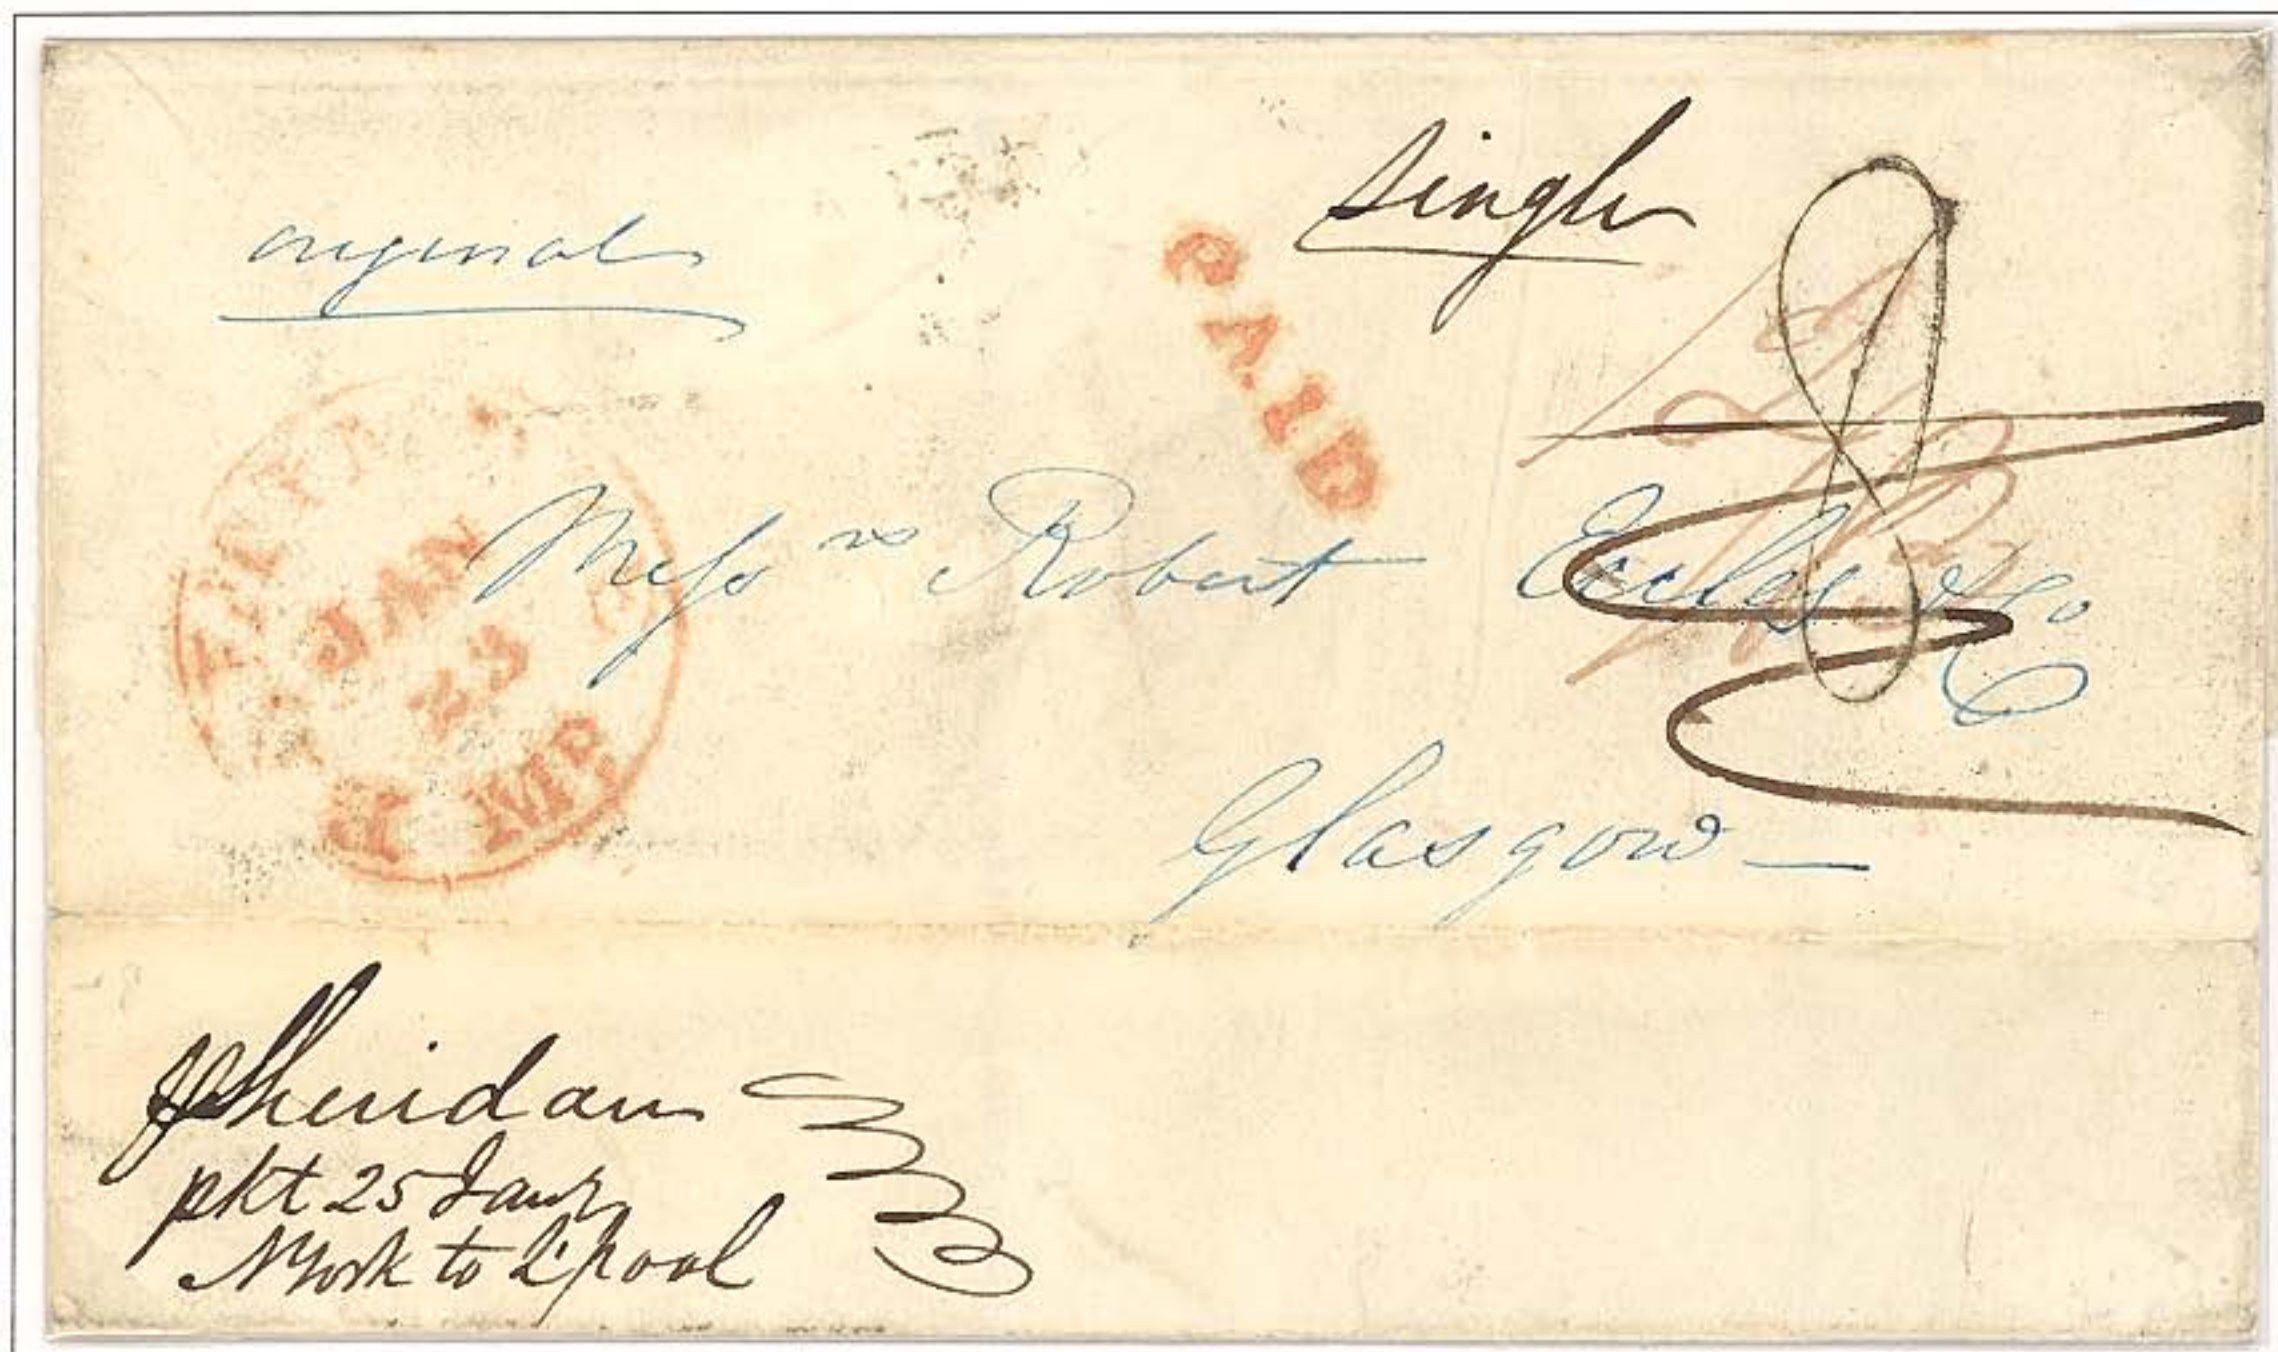 original
single
PAID
JAN
23
Mess rs Robert Eccles & Co
Glasgow —
p Sheridan
pkt 25 Jany
NYork to L'pool